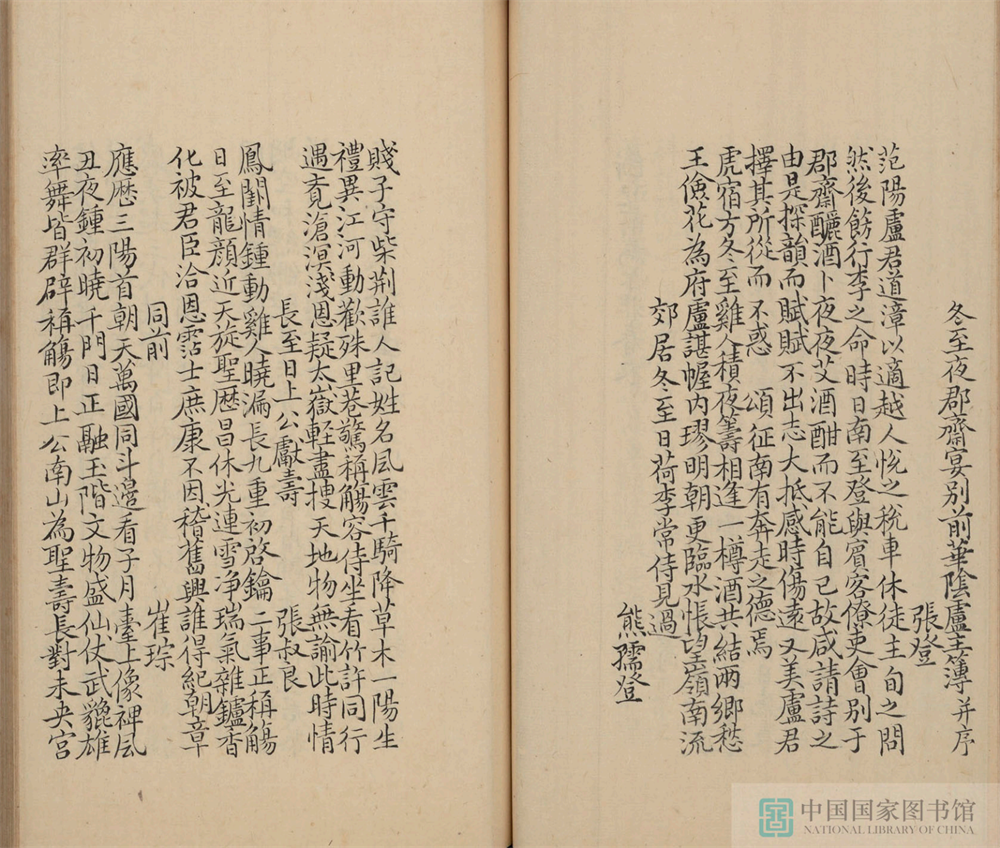 冬至夜郡齋宴别前華陰盧主簿并序
張登
范陽盧君道漳以適越人悅之稅車休徒主旬之問
然後飭行李之命時日南至登與賓客僚吏會别于
郡齋釃酒卜夜夜艾酒酣而不能自已故咸請詩之
由是探韻而賦賦不出志大抵感時傷遠又美盧君
擇其所從而不惑 頌征南有奔走之德焉
虎宿方冬至雞人積夜籌相逢一樽酒共結兩鄉愁
王儉花為府盧諶幄内璆明朝更臨水悵望嶺南流
郊居冬至日荷李常侍見過
熊孺登
賤子守柴荆誰人記姓名風雲千騎降草木一陽生
禮異江河動歡殊里巷驚稱觴容侍坐看竹許同行
遇覔滄溟淺恩疑太嶽輊盡搜天地物無諭此時情
長至日上公獻壽 張叔良
鳳闈情鍾動雞人曉漏長九重初啓鑰二事正稱觴
日至龍顔近天旋聖歴昌休光連雪净瑞氣雜鑪香
化被君臣洽恩霑士庶康不因稽舊興誰得紀朝章
同前 崔琮
應歴三陽首朝天萬國同斗邊看子月臺上像裨風
丑夜鍾初曉千門日正融玉階文物盛仙仗武貔雄
率舞皆群辟稱觴即上公南山為聖壽長對未央宫
中国国家图书馆
NATIONAL LIBRARY OF CHINA